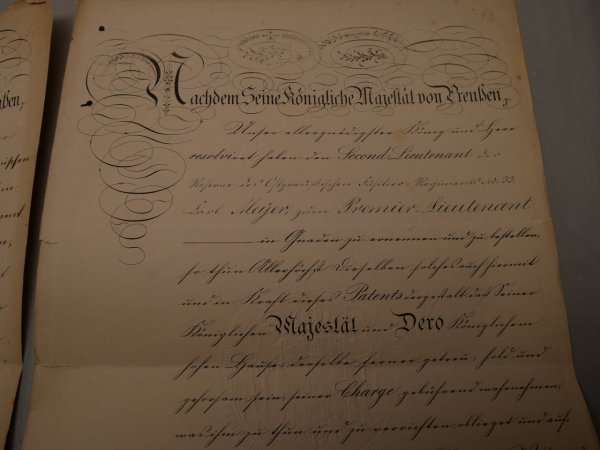 13
Nachdem Seine Königliche Majestät von Preußen,
Unser allergnädigster König und Herr
resolvirt haben, den Second-Lieutenant der
Reserve des Ostpreußischen Füsilier-Regiments No. 33.
Carl Meyer, zum Premier-Lieutenant
in Gnaden zu ernennen und zu bestellen,
so thun Allerhöchst Dieselben solches auch hiermit
und in Kraft dieses Patents dergestalt, daß Seiner
Königlichen Majestät und Dero Königlichem
hohen Hause, derselbe ferner getreu, hold und
gehorsam sein, seiner Charge gebührend wahrnehmen,
was ihm zu thun und zu verrichten oblieget und auf-